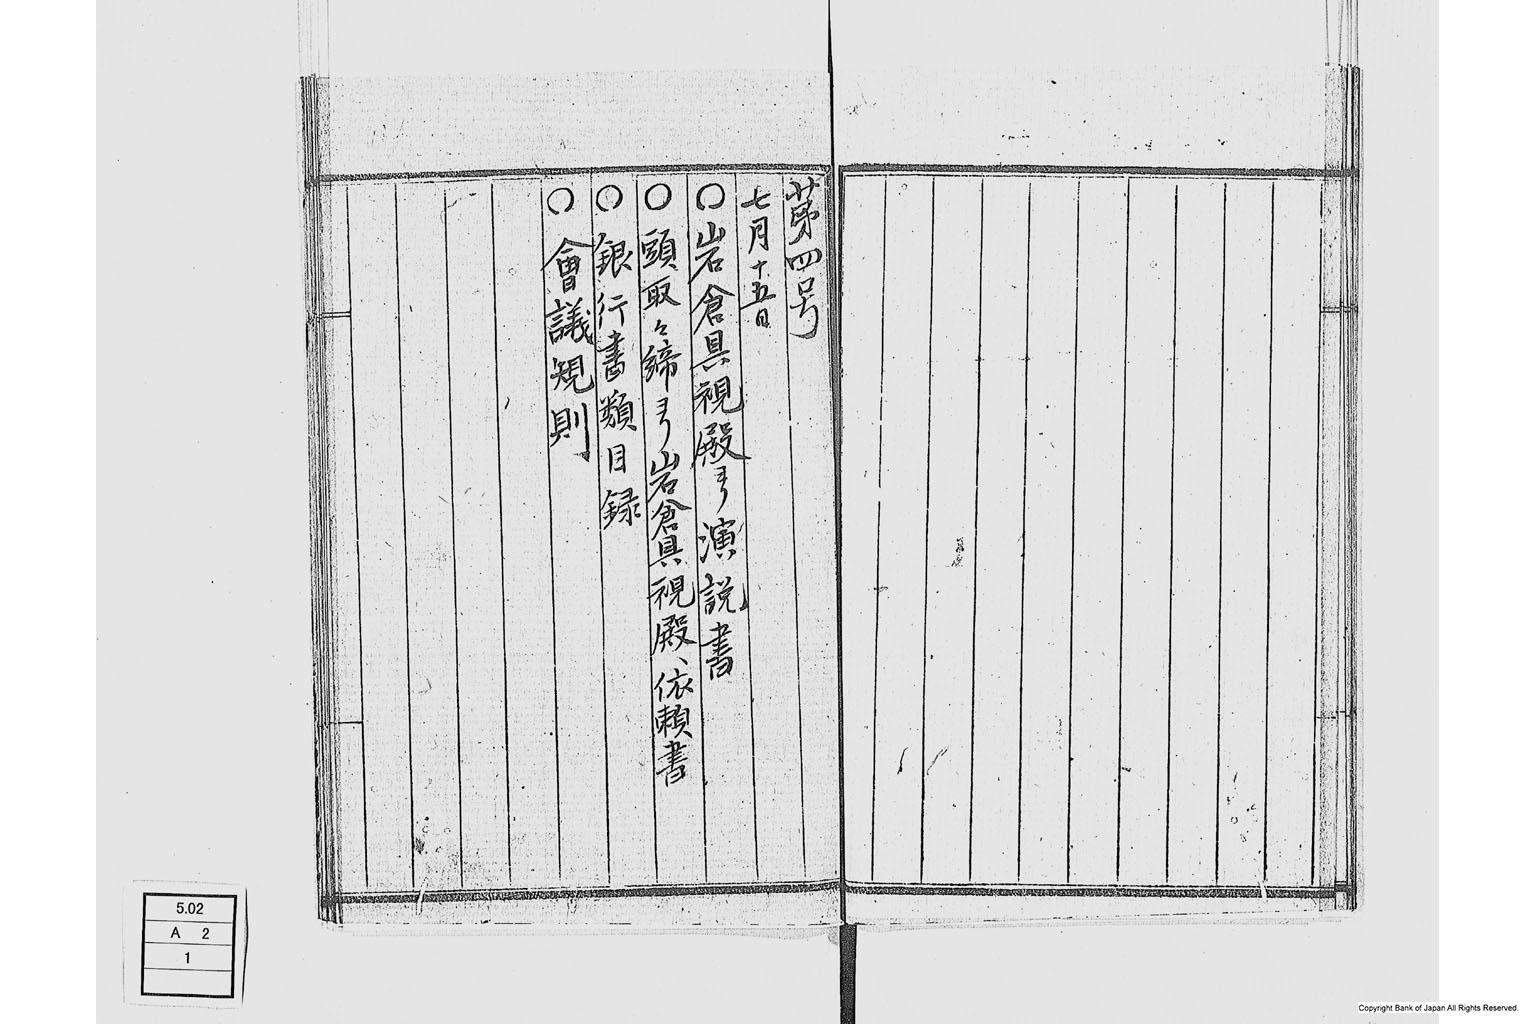 第四号
七月十五日
○岩倉具視殿ヨリ演説書
○頭取々締ヨリ岩倉具視殿ヘ依頼書
○銀行書類目録
○會議規則
5.02
A 2
1
Copyright Bank of Japan All Rights Reserved.